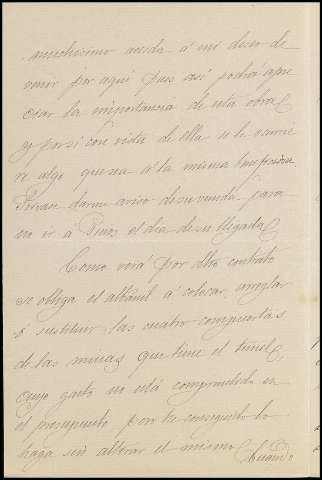 muchísimo acceda á mi deseo de
venir por aquí pues así podrá apre
ciar la importancia de esta obra
y por si con vista de ella se le ocurrie
re algo que sea á la misma beneficioso.
Sírvase darme aviso de su venida para
no ir á Pinos el día de su llegada.
Como verá por dho contrato
se obliga el albañil á colocar, arreglar
ó sustituir, las cuatro compuertas
de las minas que tiene el tunel,
cuyo gasto no está comprendido en
el presupuesto por lo consiguiente lo
haga sin alterar el mismo